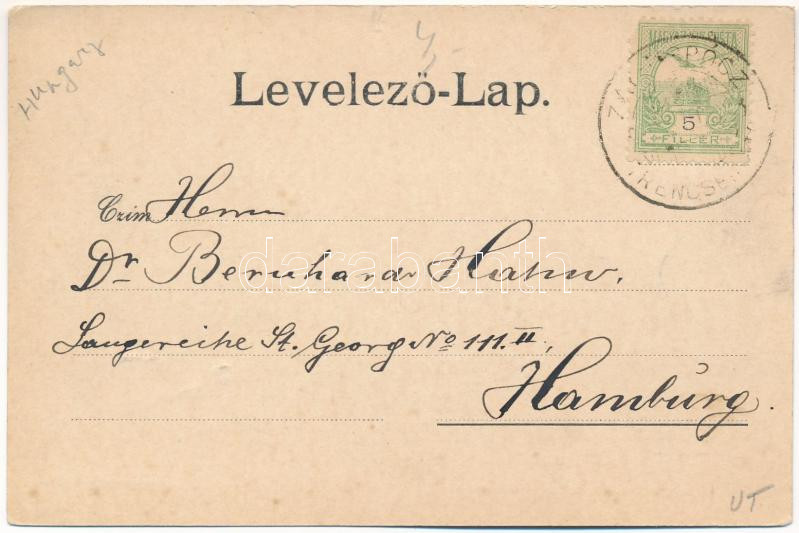 Hungary
4,-
Levelező-Lap.
MAGYAR KIR. POSTA
5
FILLER
TRENCSÉN
Czim Herrn
Dr Bernhard Hahn.
darabanth
Langereihe St. Georg No 111. II,
Hamburg.
UT